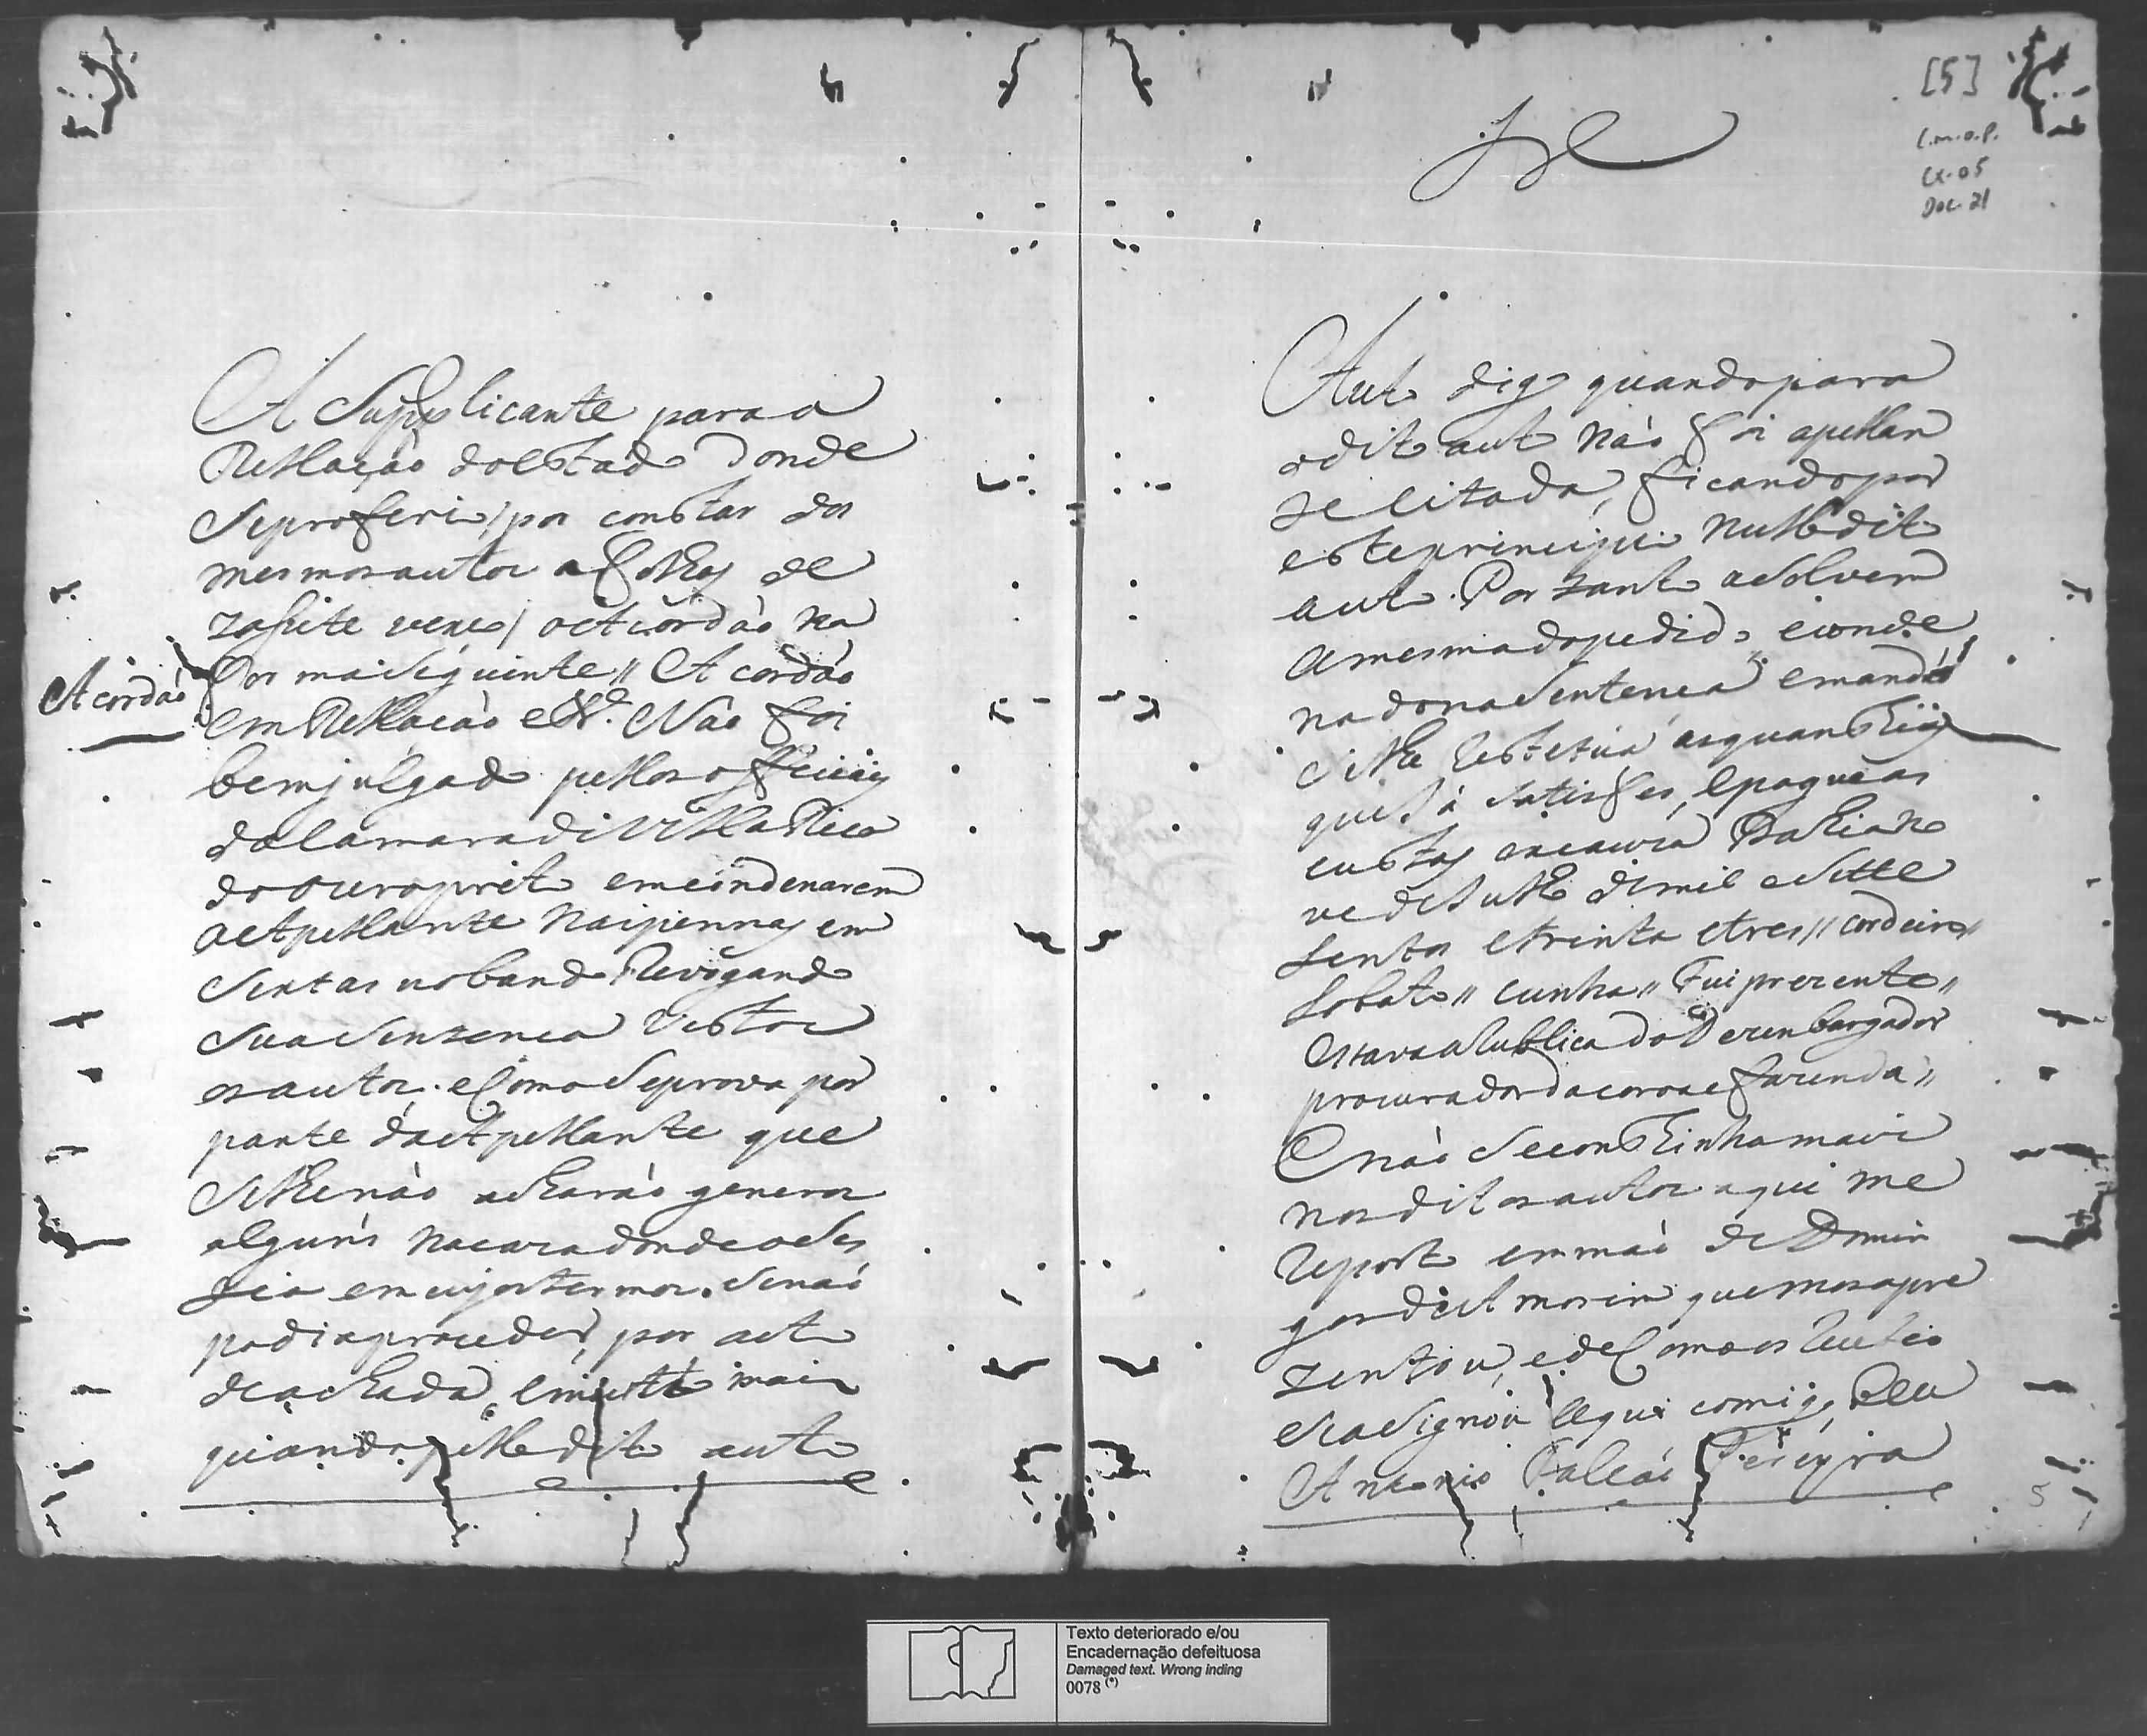 A Supplicante para a
Rellação do estado donde
Se proferio / por constar dos
mesmos autos a folhas de
zasite verço / o Acordão na
Acordão
For ma Seguinte // A cordão
em Rellacão etc.ª Não foi
bem julgado pellos officiais
da Camara de Villa Rica
do ouro preto em condenarem
a Apellante nas pennas em
Sertas no bando Revogando
Sua Sentenca Vistos
os autos. e Como Se prova por
parte da Apellante que
Selhe não acharão generos
alguns na caza donde a Ses
zia em cujos termos. Senão
podia proceder, por auto
de achada, e muito mais
quando pello dito auto
[5]
C.m.o.P.
Cx. 05
Doc. 21
Auto digo quando para
o dito auto não foi apellan
te Citada, ficando por
este principio nullo dito
auto. Por tanto asolvem
a mesma do pedido, e conde
nado na Sentenca e mandão
Selhe Restetua as quanthias
que Já Satisfes, e pague as
custas ex causa Bahia no
ve de Julho de mil e Sette
Sentos e trinta e tres // Cordeiro //
Lobato // Cunha // Fui prezente //
Estava a Rubrica do Dezenbargador
procurador da coroa e fazenda //
E não Se conthinha mais
nos ditos autos a que me
Reporto em mão de Domin
gos de Amorim que mos apre
zentou, e de Como os Recebeo
Se a Signou aqui comigo, E eu
Antonio Falcão Pereyra
5
Texto deteriorado e/ou
Encadernação defeituosa
Damaged text. Wrong inding
0078 (*)